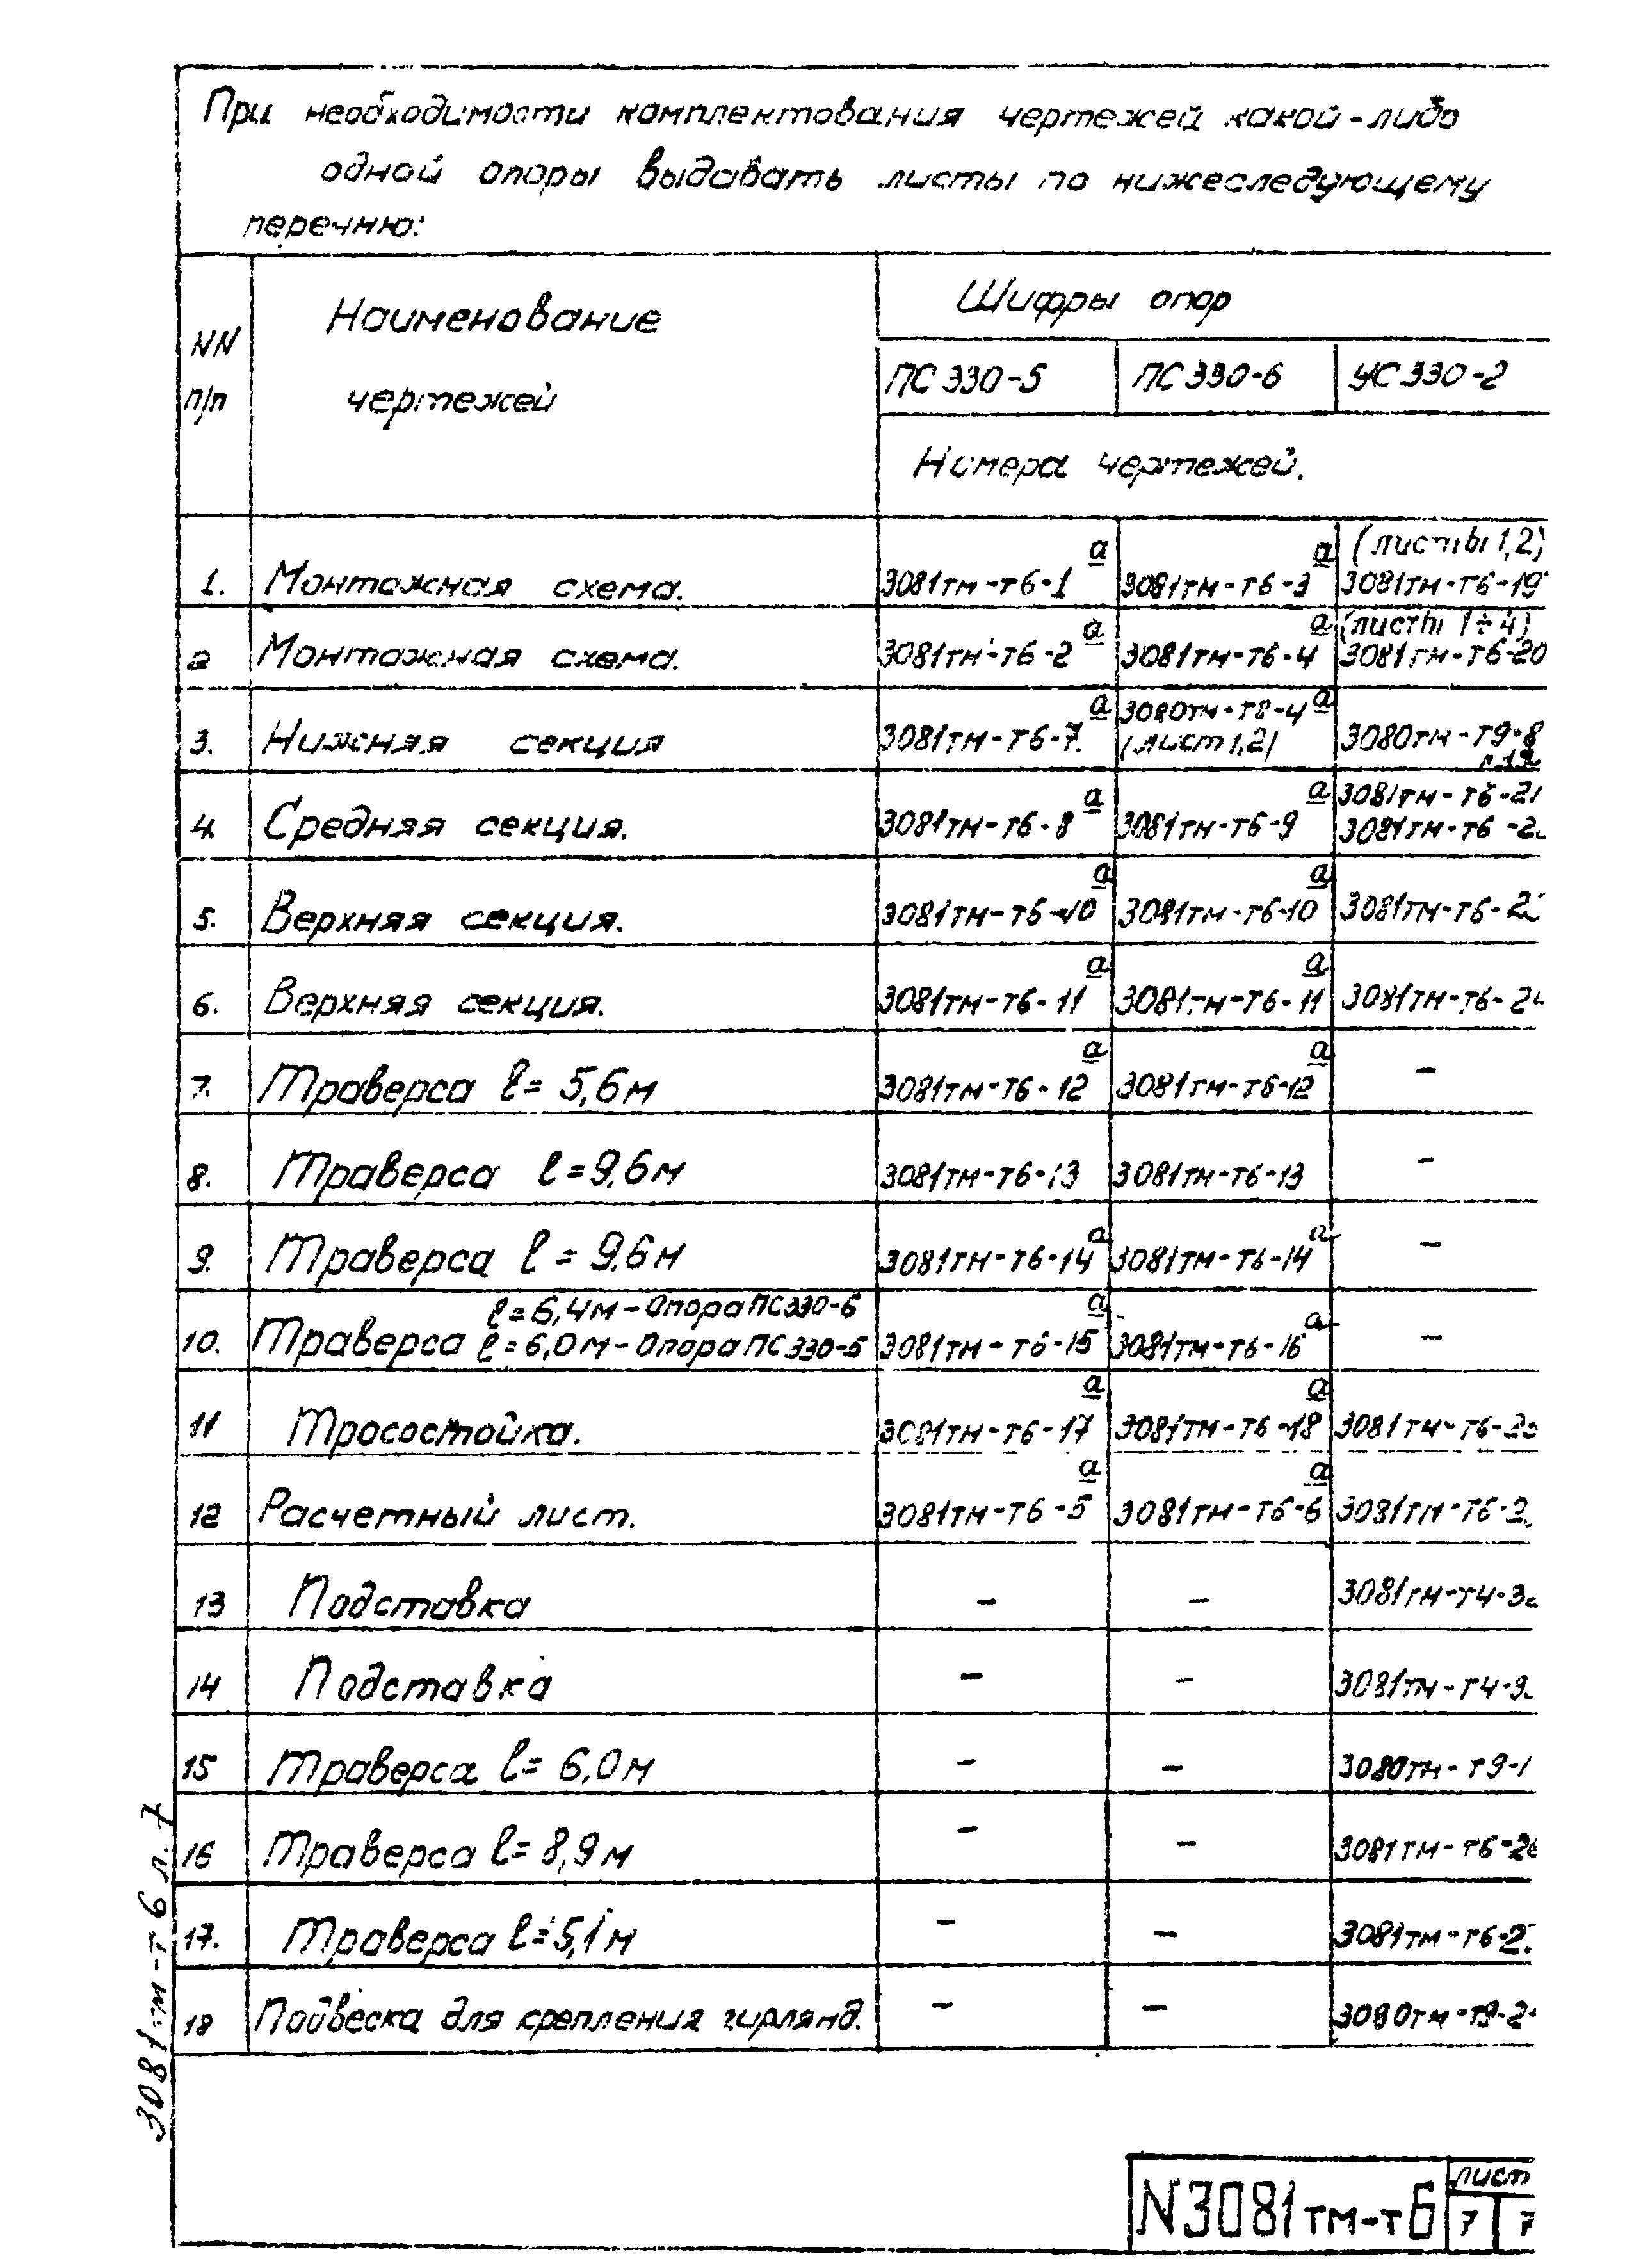 При необходимости комплектования чертежей какой-либо
одной опоры выдавать листы по нижеследующему
перечню:
NN п/п
Наименование чертежей
Шифры опор
ПС 330-5 ПС 330-6 УС 330-2
Номера чертежей.
(листы 1,2)
1. Монтажная схема. 3081тм-т6-1 а 3081тм-т6-3 а 3081тм-т6-19
(листы 1÷4)
2 Монтажная схема. 3081тм-т6-2 а 3081тм-т6-4 а 3081тм-т6-20
3. Нижняя секция 3081тм-т6-7 а 3080тм-т8-4 а (лист 1,2) 3080тм-т9-8
4. Средняя секция. 3081тм-т6-8 а 3081тм-т6-9 а 3081тм-т6-21
3081тм-т6-
5. Верхняя секция. 3081тм-т6-10 а 3081тм-т6-10 а 3081тм-т6-
6. Верхняя секция. 3081тм-т6-11 а 3081тм-т6-11 а 3081тм-т6-
7. Траверса ℓ= 5,6м 3081тм-т6-12 а 3081тм-т6-12 а -
8. Траверса ℓ=9,6м 3081тм-т6-13 3081тм-т6-13 -
9. Траверса ℓ = 9,6м 3081тм-т6-14 а 3081тм-т6-14 а -
ℓ=6,4м-Опора ПС330-6
10. Траверса ℓ=6,0м-Опора ПС330-5 3081тм-т6-15 а 3081тм-т6-16 а -
11 Тросостойка. 3081тм-т6-17 а 3081тм-т6-18 а 3081тм-т6-
12 Расчетный лист. 3081тм-т6-5 а 3081тм-т6-6 а 3081тм-т6-
13 Подставка - - 3081тм-т4-
14 Подставка - - 3081тм-т4-
15 Траверса ℓ= 6,0м - - 3080тм-т9-
16 Траверса ℓ= 8,9м - - 3081тм-т6-
17. Траверса ℓ=5,1м - - 3081тм-т6-
18 Подвеска для крепления гирлянд. - - 3080тм-т9-
3081тм-т6 л. 7
N3081тм-т6 лист
7 7